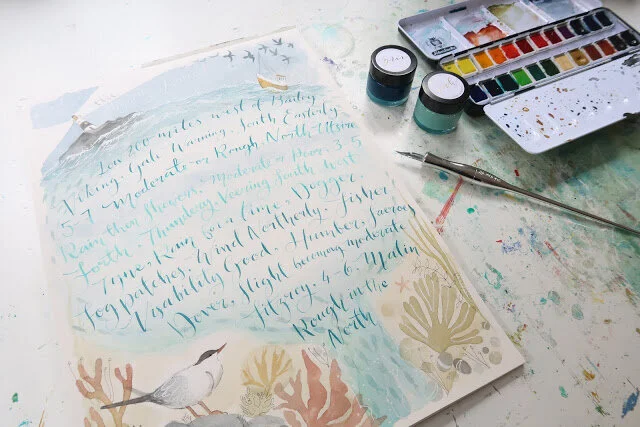 Low 200 miles west of Bailey
Viking, Gale Warning, South Easterly
5-7 Moderate or Rough, North Utsire
Rain then Showers, Moderate or Poor, 3-5
Forth, Thunday Veering South West
Tyne, Rain for a time, Dogger.
Fog patches, Wind Northerly Fisher,
Visability Good, Humber, Faeroes
Dover, Slight becoming moderate
Fitzroy, 4-6, Malin
Rough in the
North.